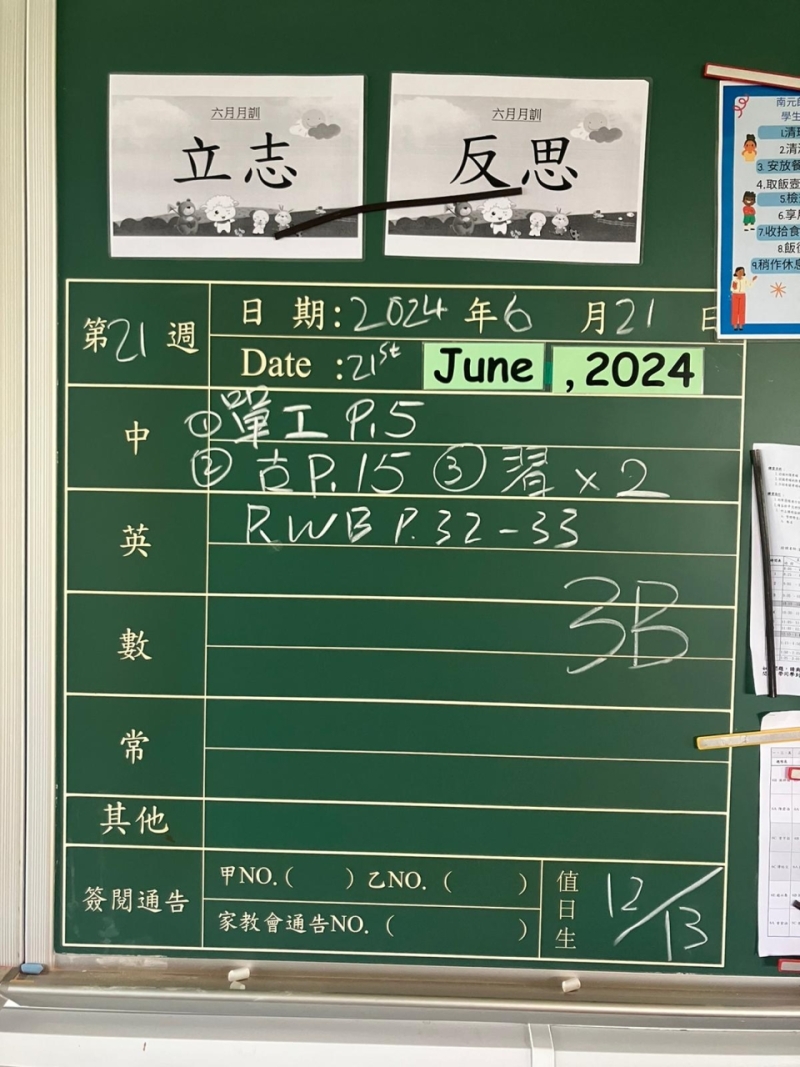 六月月訓
立志
六月月訓
反思
南元
學生
1.清
2.清
3.安放餐
4.取飯壺
5.檢
6.享
7.收拾食
8.飯後
9.稍作休息
第21週
日期:2024年6月21日
Date :21st June , 2024
中
①單工 P.5
②古P.15 ③習 x 2
英
RWB P.32-33
數
3B
常
其他
簽閱通告
甲NO.( ) 乙NO. ( )
家教會通告NO. ( )
值日生
12/13